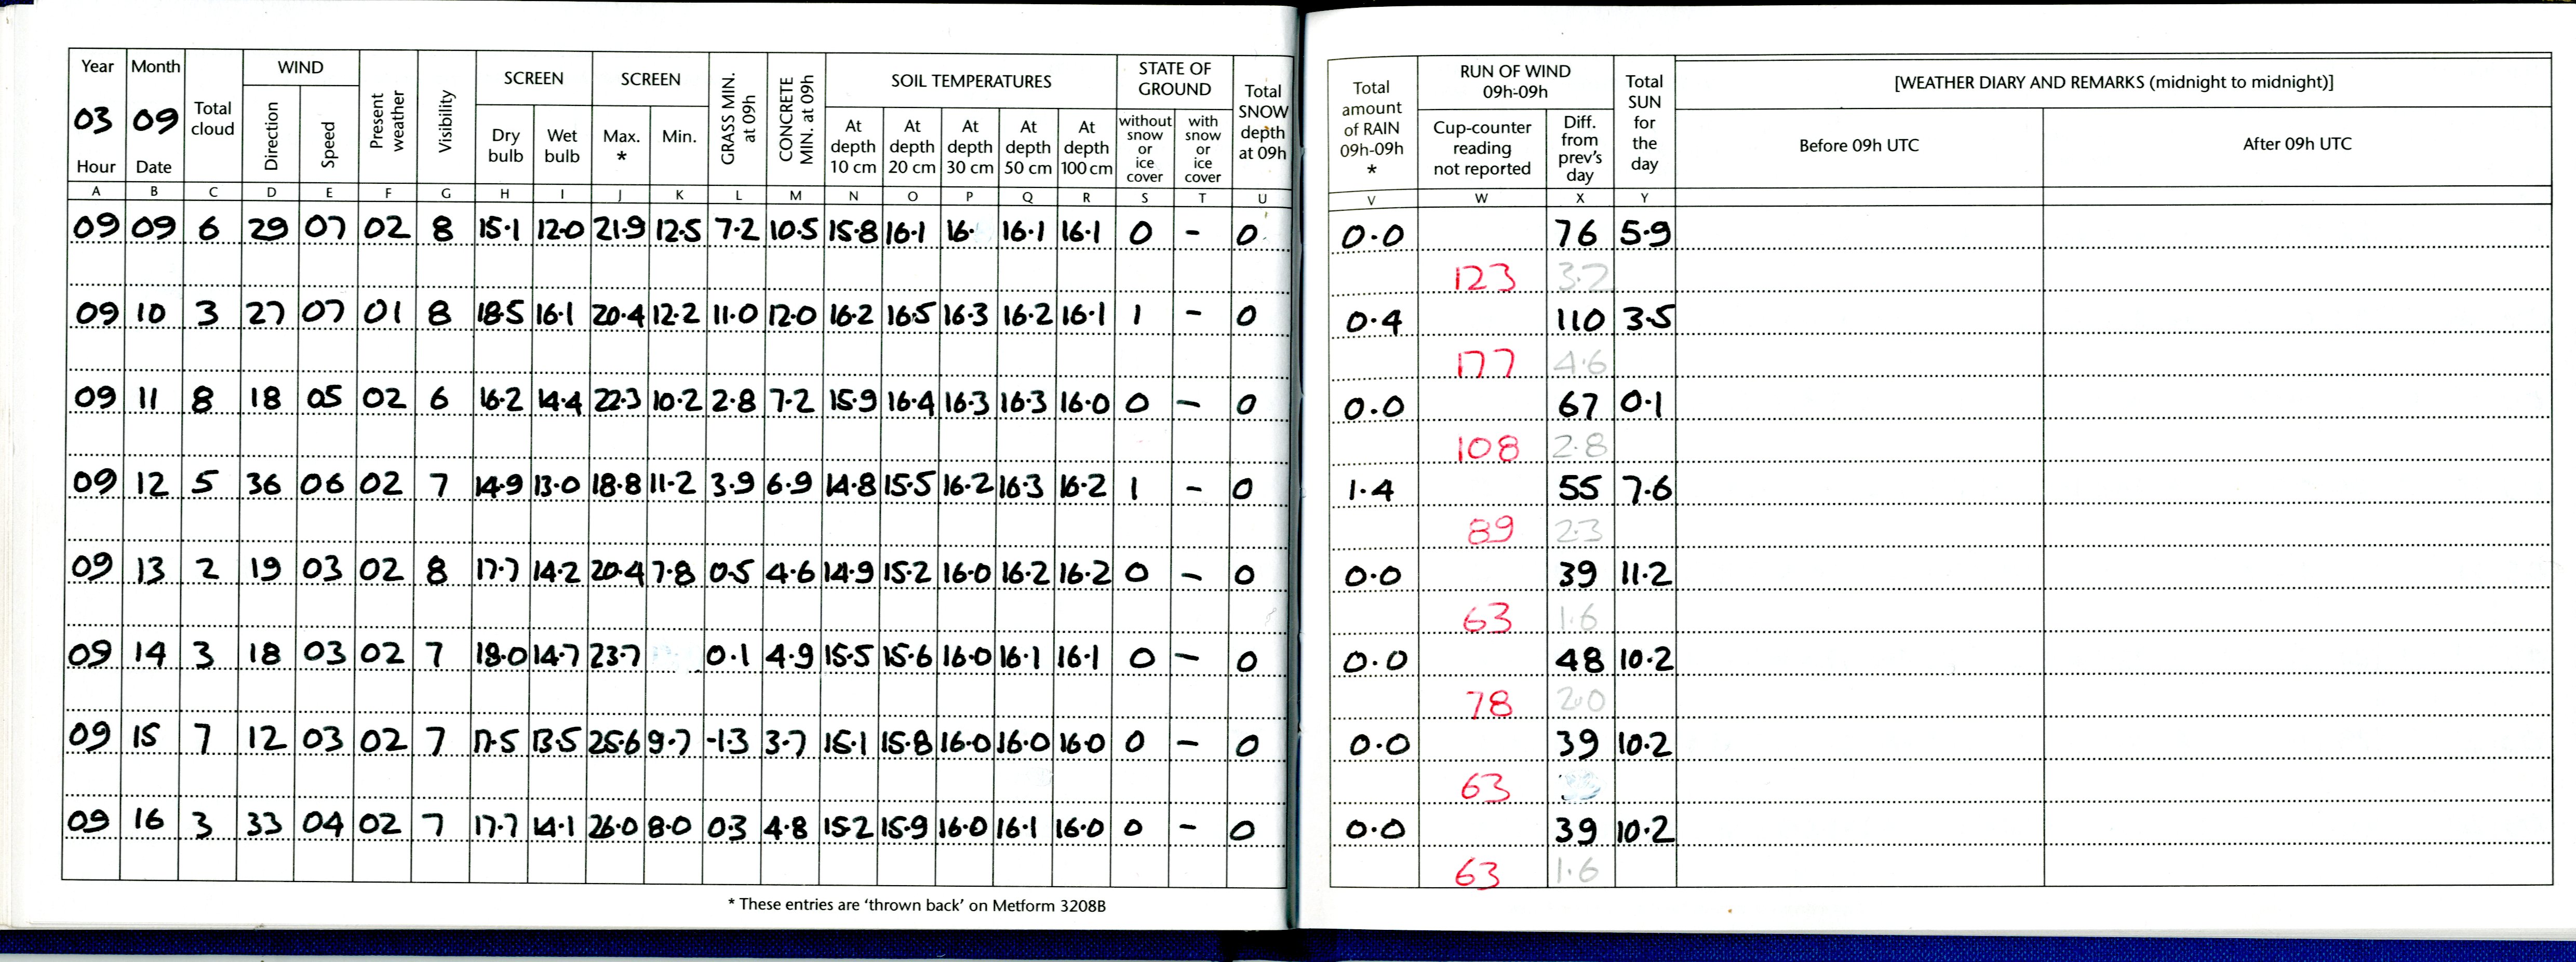 Year Month Total cloud WIND Present weather Visibility SCREEN SCREEN GRASS MIN. at 09h CONCRETE MIN. at 09h SOIL TEMPERATURES STATE OF GROUND Total SNOW depth at 09h Total amount of RAIN 09h-09h * RUN OF WIND 09h-09h Total SUN for the day [WEATHER DIARY AND REMARKS (midnight to midnight)]
03 09 Direction Speed Dry bulb Wet bulb Max. * Min. At depth 10 cm At depth 20 cm At depth 30 cm At depth 50 cm At depth 100 cm without snow or ice cover with snow or ice cover Cup-counter reading not reported Diff. from prev's day Before 09h UTC After 09h UTC
Hour Date
A B C D E F G H I J K L M N O P Q R S T U V W X Y
09 09 6 29 07 02 8 15.1 12.0 21.9 12.5 7.2 10.5 15.8 16.1 16. 16.1 16.1 0 - 0 0.0 76 5.9
123 3.7
09 10 3 27 07 01 8 18.5 16.1 20.4 12.2 11.0 12.0 16.2 16.5 16.3 16.2 16.1 1 - 0 0.4 110 3.5
177 4.6
09 11 8 18 05 02 6 16.2 14.4 22.3 10.2 2.8 7.2 15.9 16.4 16.3 16.3 16.0 0 - 0 0.0 67 0.1
108 2.8
09 12 5 36 06 02 7 14.9 13.0 18.8 11.2 3.9 6.9 14.8 15.5 16.2 16.3 16.2 1 - 0 1.4 55 7.6
89 2.3
09 13 2 19 03 02 8 17.7 14.2 20.4 7.8 0.5 4.6 14.9 15.2 16.0 16.2 16.2 0 - 0 0.0 39 11.2
63 1.6
09 14 3 18 03 02 7 18.0 14.7 23.7 0.1 4.9 15.5 15.6 16.0 16.1 16.1 0 - 0 0.0 48 10.2
78 2.0
09 15 7 12 03 02 7 17.5 13.5 25.6 9.7 -1.3 3.7 15.1 15.8 16.0 16.0 16.0 0 - 0 0.0 39 10.2
63
09 16 3 33 04 02 7 17.7 14.1 26.0 8.0 0.3 4.8 15.2 15.9 16.0 16.1 16.0 0 - 0 0.0 39 10.2
63 1.6
* These entries are 'thrown back' on Metform 3208B